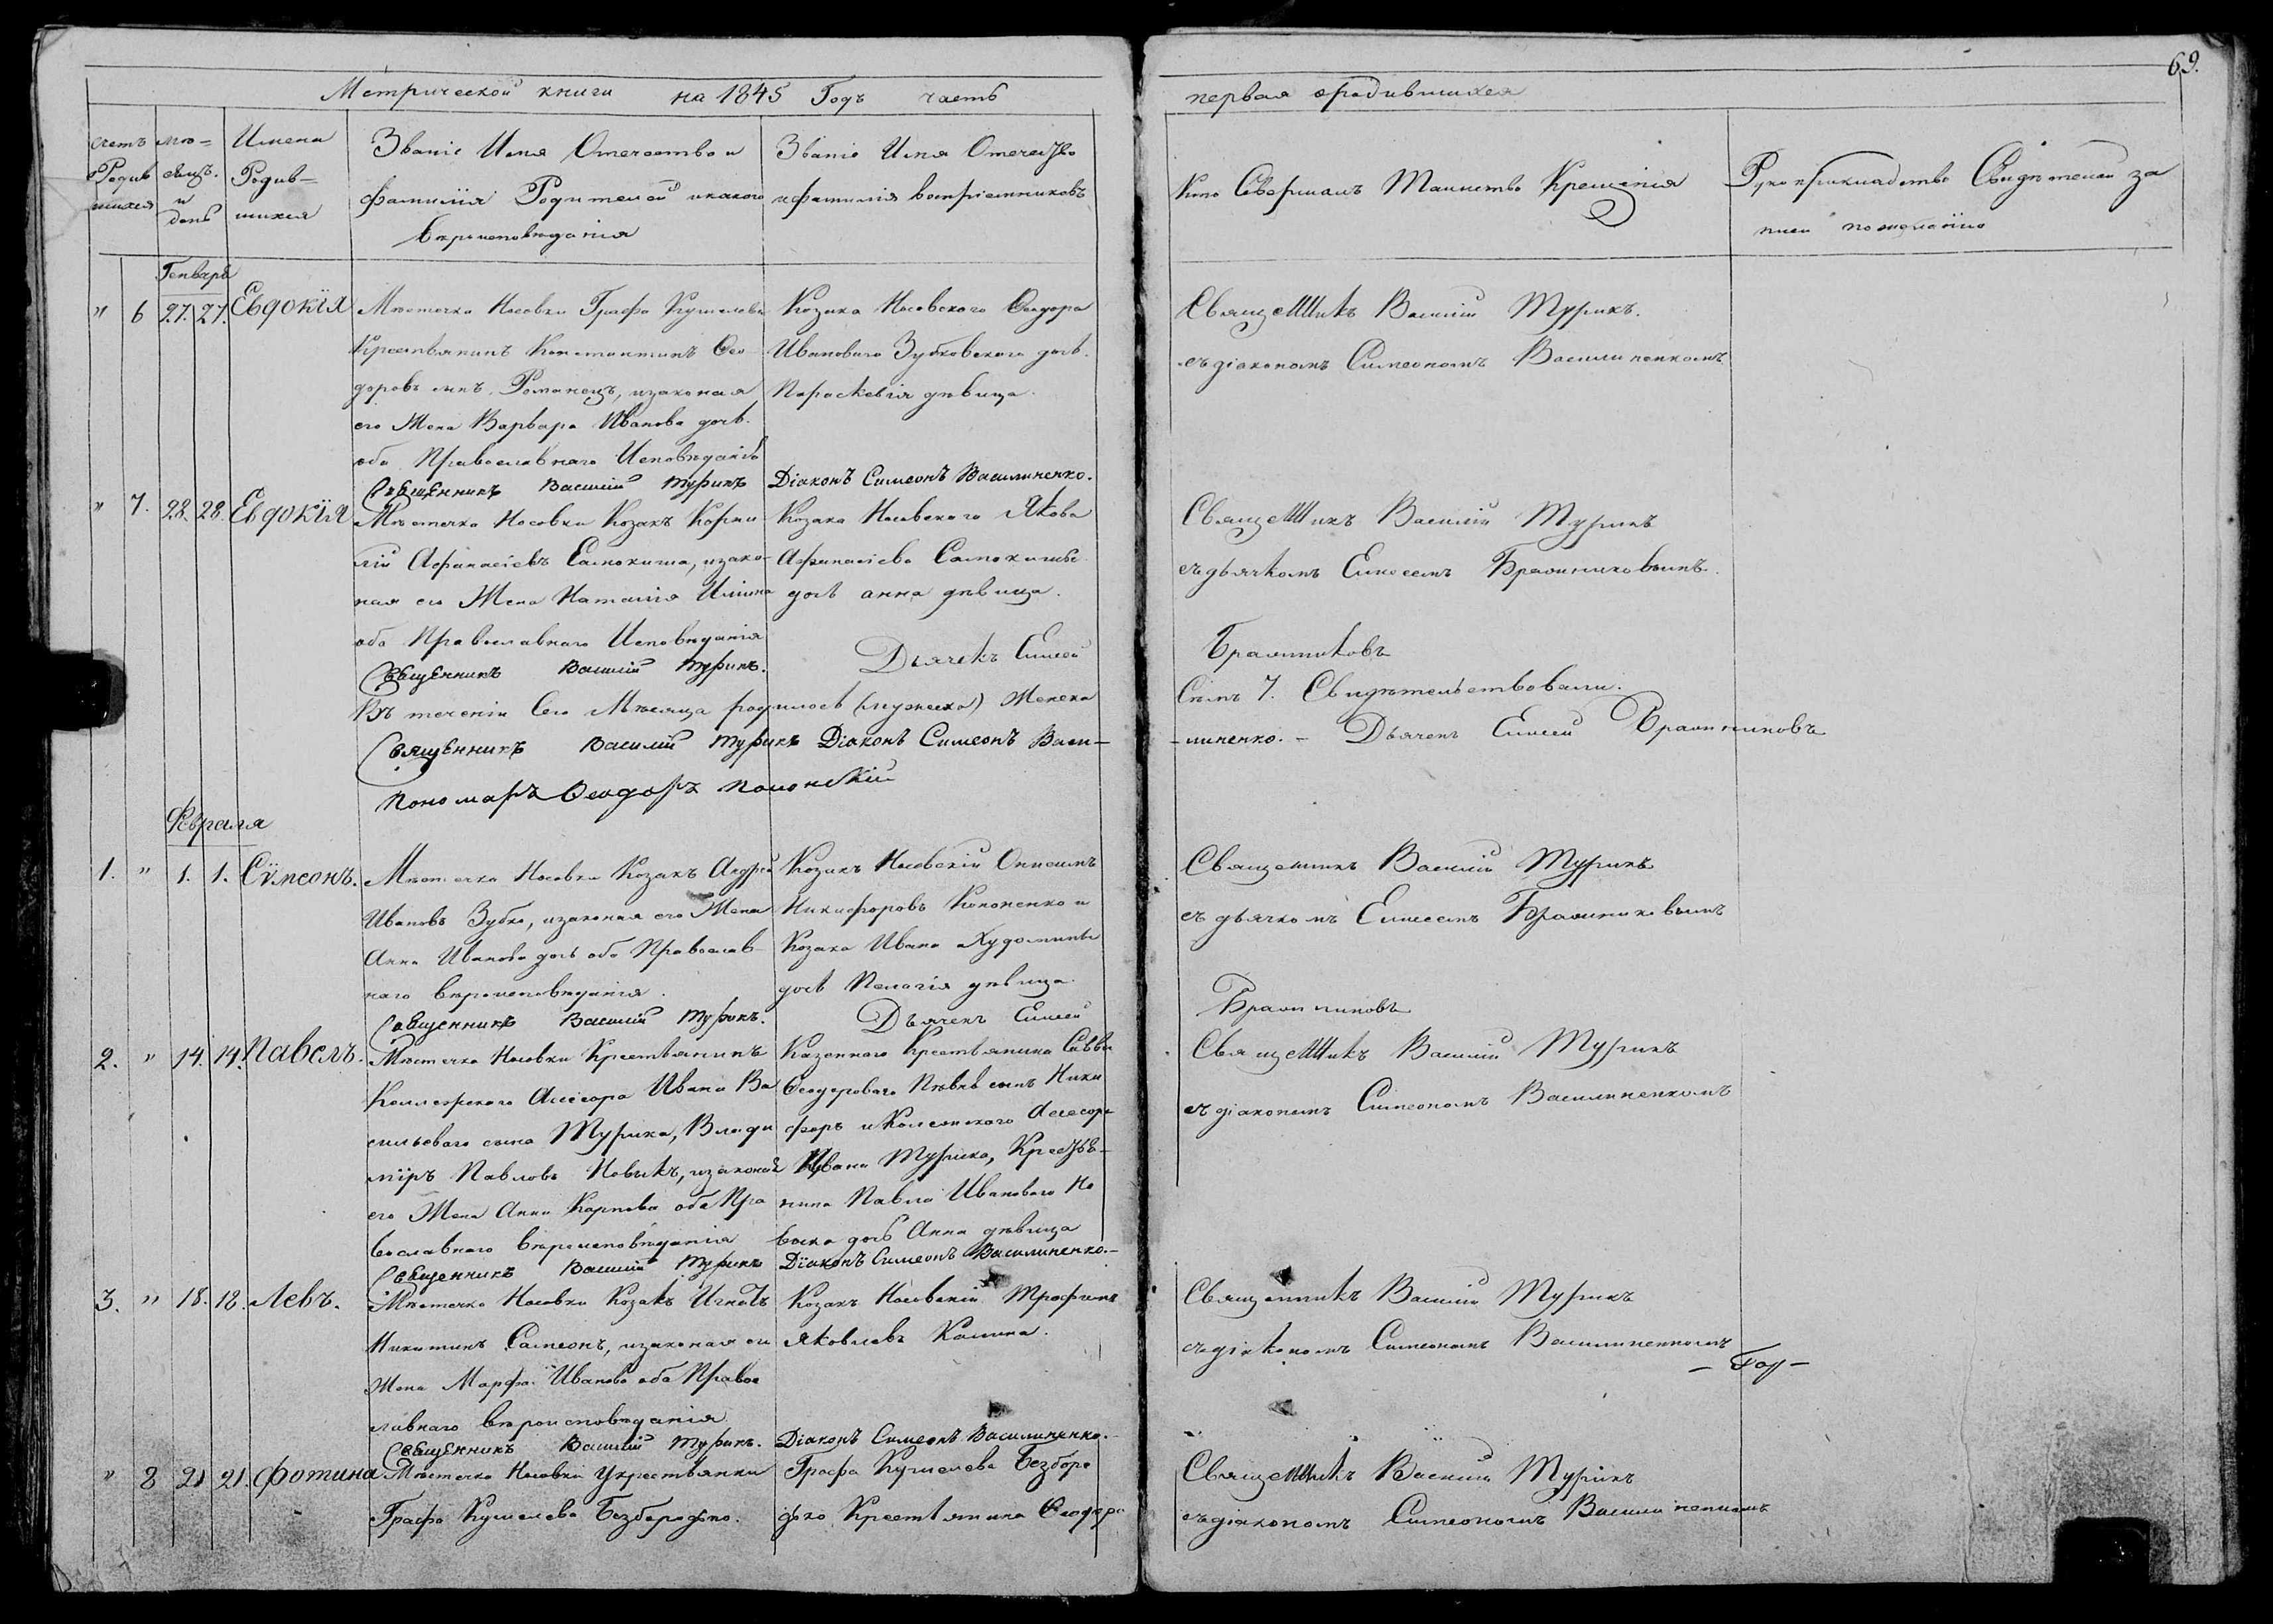 69.
Метрической книги на 1845 Годъ часть первая о родившихся
счетъ Родив шихся
мѣ= сяцъ. и день
Имена Родив= шихся
Званіе Имя Отечество и фамилія Родителей и какого вѣроисповѣданія
Званіе Имя Отечество и фамилія воспріемниковъ
Кто Совершалъ Таинство Крещенія
Рукоприкладство Свидѣтелей за писи по желанію
Генваря
" 6 27. 27. Евдокія
Мѣстечка Носовки Графа Кушелева
Крестьянинъ Константинъ Ѳео
доровъ сынъ Романецъ, и законая
его Жена Варвара Иванова дочь.
оба Православнаго Исповѣданія
Священникъ Василій Турикъ
Козака Носовского Ѳеодора
Иванового Зубковского дочь.
Параскевія дѣвица.
Діаконъ Симеонъ Василиненко.
Священникъ Василій Турикъ.
съ діакономъ Симеономъ Василиненкомъ
" 7. 28. 28. Евдокія
Мѣстечка Носовки Козакъ Корни
лій Афанасіевъ Самокиша, и зако-
ная его Жена Наталія Ильина
оба Православнаго Исповѣданія
Священникъ Василій Турикъ.
Козака Носовского Якова
Афанасіева Самокиши
дочь анна дѣвица.
Дьячекъ Елисей
Священникъ Василій Турикъ
съ дьячкомъ Елисеемъ Бражниковымъ.
Бражниковъ
Въ теченіи Сего Мѣсяца родилось (мужеска) Женска
Семь 7. Свидѣтельствовали.
Священникъ Василій Турикъ Діаконъ Симеонъ Васи-
-линенко. - Дьячекъ Елисей Бражниковъ
Пономарь Ѳеодоръ Полонскій
Февраля
1. " 1. 1. Сѵмеонъ.
Мѣстечка Носовки Козакъ Андрей
Ивановъ Зубко, и законая его Жена
Анна Иванова дочь оба Православ
наго вѣроисповѣданія.
Священникъ Василій Турикъ.
Козакъ Носовскій Онисимъ
Никифоровъ Кононенко и
Козака Ивана Худолиипы
дочь Пелагія дѣвица.
Дьячекъ Елисей
Священникъ Василій Турикъ
съ дьячкомъ Елисеемъ Бражниковымъ
Бражниковъ
2. " 14. 14. Павелъ.
Мѣстечка Носовки Крестьянинъ
Коллежского Асесора Ивана Ва
сильевого сына Турика, Влади
міръ Павловъ Новикъ, и законая
его Жена Анна Карпова оба Пра
вославнаго вѣроисповѣданія
Священникъ Василій Турикъ
Казенного Крестьянина Саввы
Ѳеодорового Пѣвня сынъ Ники
форъ и Колежского Асесора
Ивана Турика, Крестья-
нина Павла Иванового Но
вика дочь Анна дѣвица
Діаконъ Симеонъ Василиненко.-
Священникъ Василій Турикъ
съ діакономъ Симеономъ Василиненкомъ
3. " 18. 18. Левъ.
Мѣстечка Носовки Козакъ Игнатъ
Никитинъ Самсонъ, и законая его
Жена Марфа Иванова оба Право
славнаго вѣроисповѣданія
Священникъ Василій Турикъ.
Козакъ Носовскій Трофимъ
Яковлевъ Калина.
Діаконъ Симеонъ Василиненко.-
Священникъ Василій Турикъ
съ діакономъ Симеономъ Василиненкомъ
" 8 21 21. Фотина
Мѣстечка Носовки у крестьянки
Графа Кушелева Безбородко.
Графа Кушелева Безборо
дко Крестьянина Ѳеодора
Священникъ Василій Турикъ
съ діакономъ Симеономъ Василиненкомъ